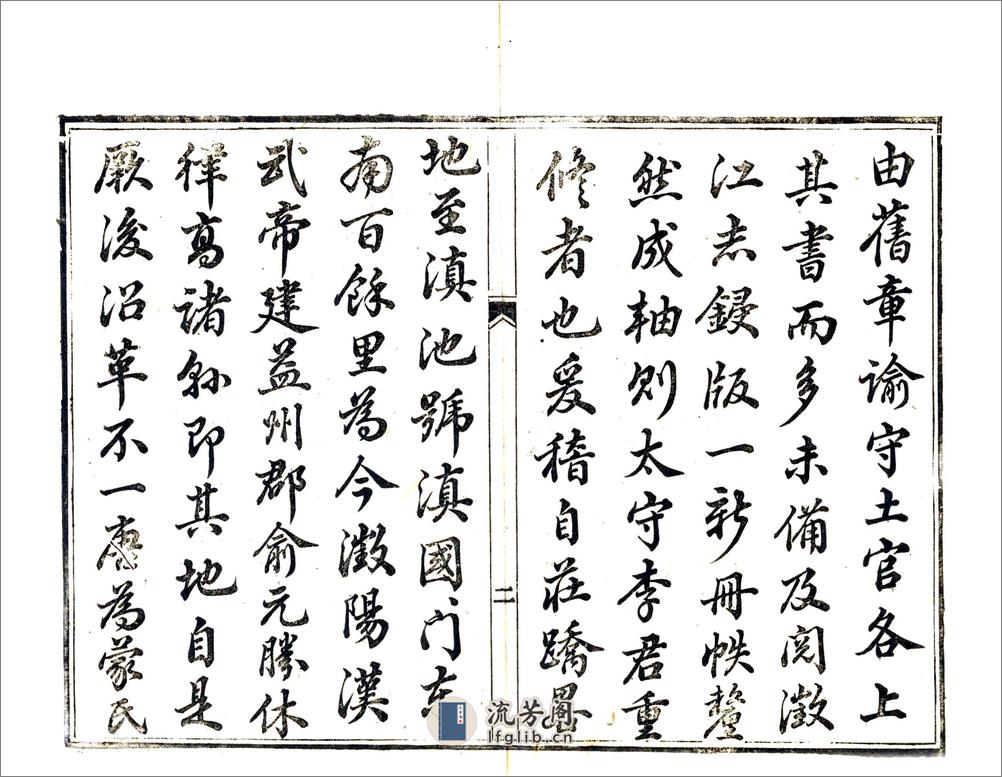 由舊章諭守土官各上
其書而多未備及閱澂
江志鋟版一新冊帙釐
然成軸則太守李君重
修者也爰稽自莊蹻畧
二
地至滇池號滇國门東
南百餘里為今澂陽漢
武帝建益州郡俞元勝休
律高諸縣即其地自是
厥後沿革不一唐為蒙氏
流芳閣
lfglib.cn